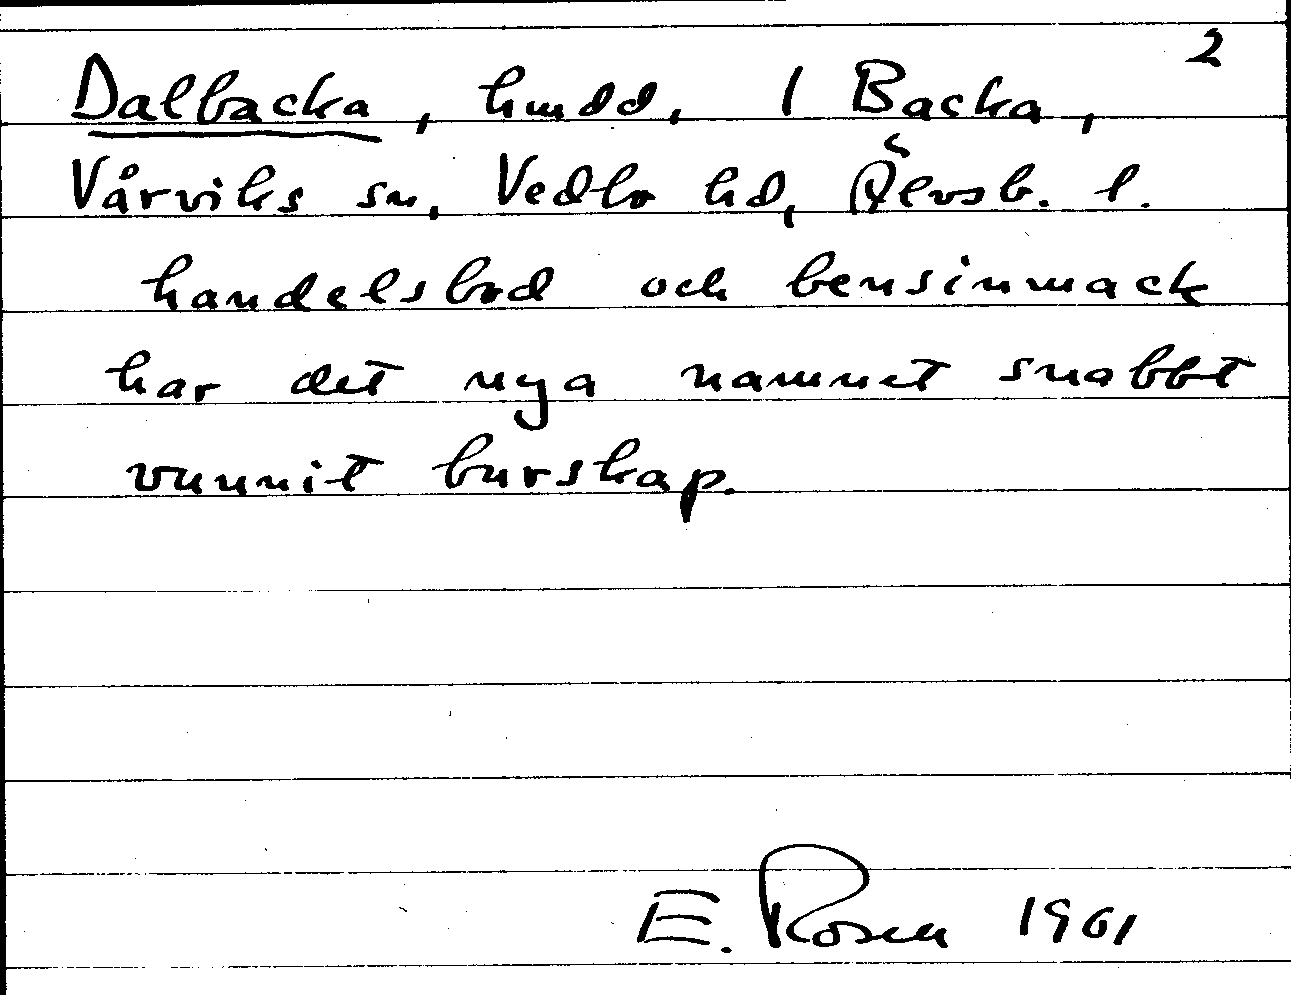 2
Dalbacka, hmdd, 1 Backa,
Vårviks sn, Vedbo hd, Älvsb. l.
handelsbod och bensinmack
har det nya namnet snabbt
vunnit burskap.
E. Rosen 1961